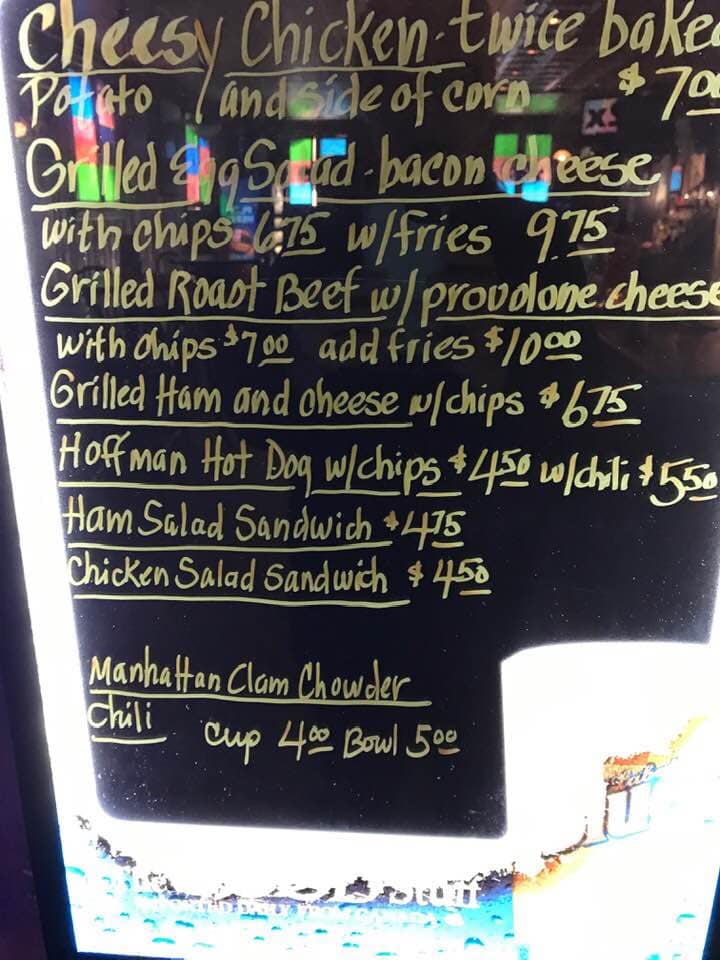 Cheesy Chicken - twice baked
Potato / and side of corn $7.00
Grilled Egg Salad - bacon cheese
with chips 6.75 w/fries 9.75
Grilled Roast Beef w/provolone cheese
with chips $7.00 add fries $10.00
Grilled Ham and cheese w/chips $6.75
Hoffman Hot Dog w/chips $4.50 w/chili $5.50
Ham Salad Sandwich $4.75
Chicken Salad Sandwich $4.50
Manhattan Clam Chowder
Chili
Cup 4.00 Bowl 5.00
Stuff
FROM CANADA